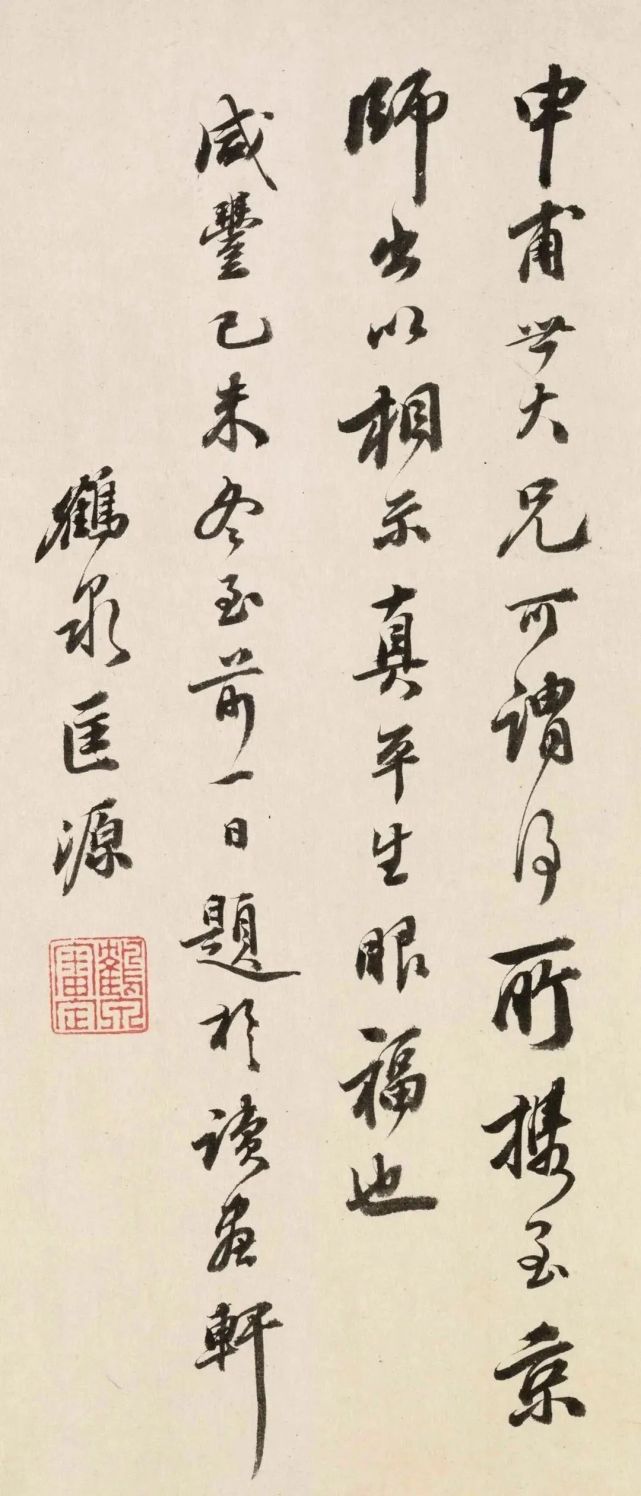 申甫世大兄可謂得所攜至京
師出以相示真平生眼福也
咸豐己未冬至前一日題於讀畫軒
鶴泉匡源
鶴泉
審定